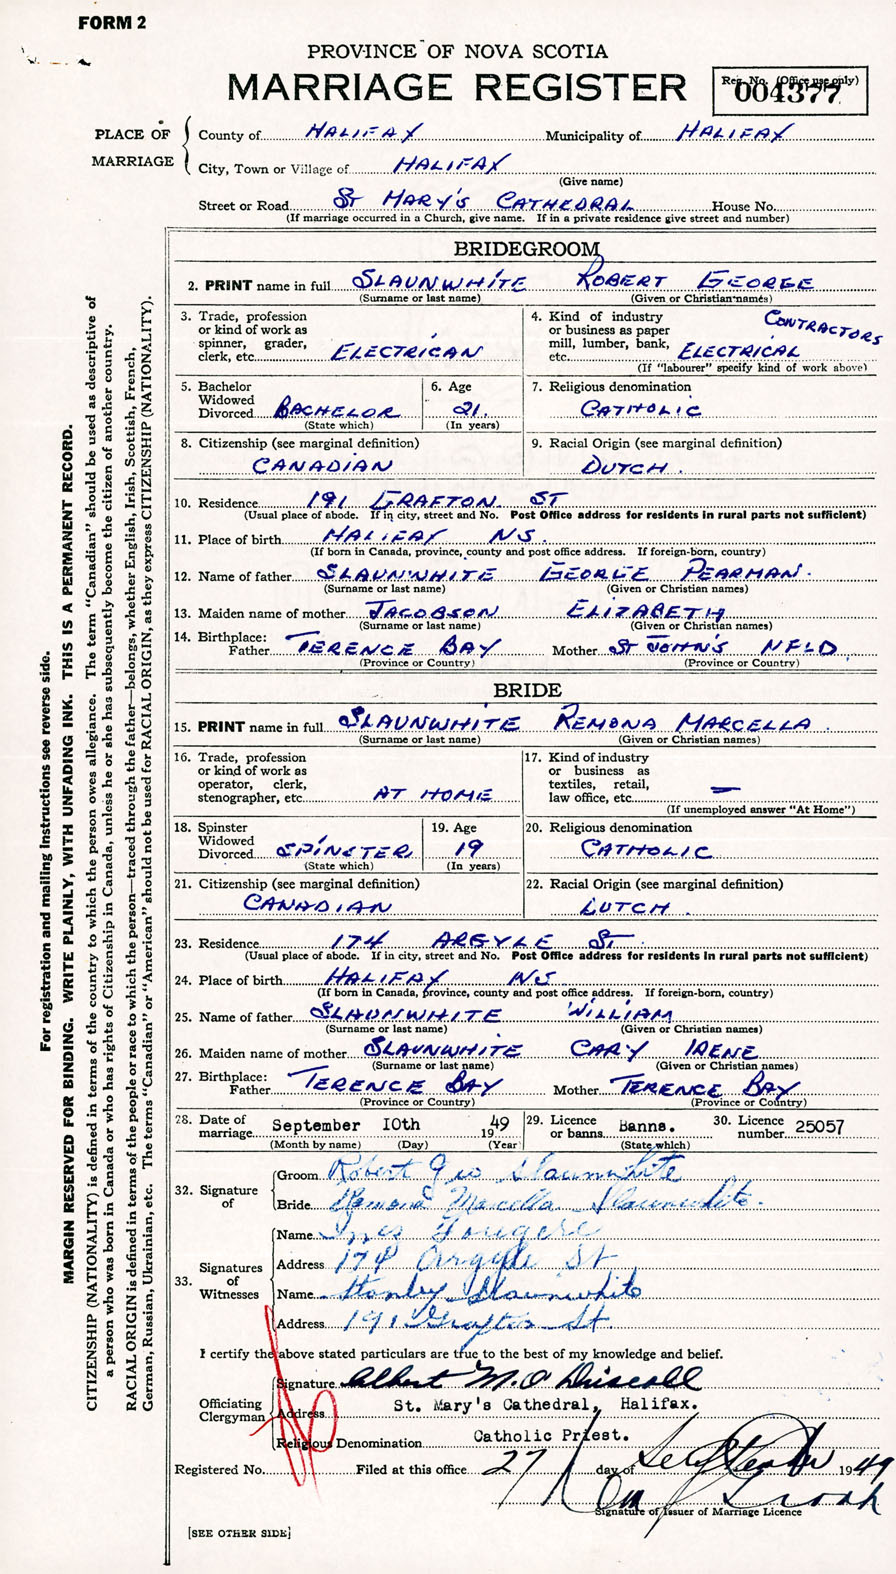 FORM 2
PROVINCE OF NOVA SCOTIA
MARRIAGE REGISTER
Reg. No. (Office use only)
004377
PLACE OF MARRIAGE
County of HALIFAX Municipality of HALIFAX
City, Town or Village of HALIFAX
(Give name)
Street or Road ST MARY'S CATHEDRAL House No.
(If marriage occurred in a Church, give name. If in a private residence give street and number)
BRIDEGROOM
2. PRINT name in full SLAUNWHITE ROBERT GEORGE
(Surname or last name) (Given or Christian names)
3. Trade, profession
or kind of work as
spinner, grader,
clerk, etc. ELECTRICAN
4. Kind of industry
or business as paper
mill, lumber, bank,
etc. ELECTRICAL CONTRACTORS
(If "labourer" specify kind of work above)
5. Bachelor
Widowed
Divorced BACHELOR
(State which)
6. Age
21.
(In years)
7. Religious denomination
CATHOLIC
8. Citizenship (see marginal definition)
CANADIAN
9. Racial Origin (see marginal definition)
DUTCH.
10. Residence 191 GRAFTON ST
(Usual place of abode. If in city, street and No. Post Office address for residents in rural parts not sufficient)
11. Place of birth HALIFAX NS.
(If born in Canada, province, county and post office address. If foreign-born, country)
12. Name of father SLAUNWHITE GEORGE PEARMAN.
(Surname or last name) (Given or Christian names)
13. Maiden name of mother JACOBSON ELIZABETH
(Surname or last name) (Given or Christian names)
14. Birthplace:
Father TERENCE BAY Mother ST JOHN'S NFLD.
(Province or Country) (Province or Country)
BRIDE
15. PRINT name in full SLAUNWHITE REMONA MARCELLA.
(Surname or last name) (Given or Christian names)
16. Trade, profession
or kind of work as
operator, clerk,
stenographer, etc. AT HOME
17. Kind of industry
or business as
textiles, retail,
law office, etc. —
(If unemployed answer "At Home")
18. Spinster
Widowed
Divorced SPINSTER
(State which)
19. Age
19
(In years)
20. Religious denomination
CATHOLIC
21. Citizenship (see marginal definition)
CANADIAN
22. Racial Origin (see marginal definition)
DUTCH.
23. Residence 174 ARGYLE ST.
(Usual place of abode. If in city, street and No. Post Office address for residents in rural parts not sufficient)
24. Place of birth HALIFAX NS
(If born in Canada, province, county and post office address. If foreign-born, country)
25. Name of father SLAUNWHITE WILLIAM
(Surname or last name) (Given or Christian names)
26. Maiden name of mother SLAUNWHITE CARY IRENE
(Surname or last name) (Given or Christian names)
27. Birthplace:
Father TERENCE BAY Mother TERENCE BAY
(Province or Country) (Province or Country)
28. Date of marriage September 10th 1949
(Month by name) (Day) (Year)
29. Licence or banns Banns.
(State which)
30. Licence number 25057
32. Signature of
Groom Robert Geo Slaunwhite
Bride Remona Marcella Slaunwhite.
33. Signatures of Witnesses
Name Ines Fougere
Address 174 Argyle St
Name Stanley Slaunwhite
Address 191 Grafton St.
I certify the above stated particulars are true to the best of my knowledge and belief.
Officiating Clergyman
Signature Albert M. O'Driscoll
Address St. Mary's Cathedral, Halifax.
Religious Denomination Catholic Priest.
Registered No. Filed at this office 27 day of September 1949
Signature of Issuer of Marriage Licence
[SEE OTHER SIDE]
For registration and mailing instructions see reverse side.
MARGIN RESERVED FOR BINDING. WRITE PLAINLY, WITH UNFADING INK. THIS IS A PERMANENT RECORD.
CITIZENSHIP (NATIONALITY) is defined in terms of the country to which the person owes allegiance. The term "Canadian" should be used as descriptive of
a person who was born in Canada or who has rights of Citizenship in Canada, unless he or she has subsequently become the citizen of another country.
RACIAL ORIGIN is defined in terms of the people or race to which the person—traced through the father—belongs, whether English, Irish, Scottish, French,
German, Russian, Ukrainian, etc. The terms "Canadian" or "American" should not be used for RACIAL ORIGIN, as they express CITIZENSHIP (NATIONALITY).